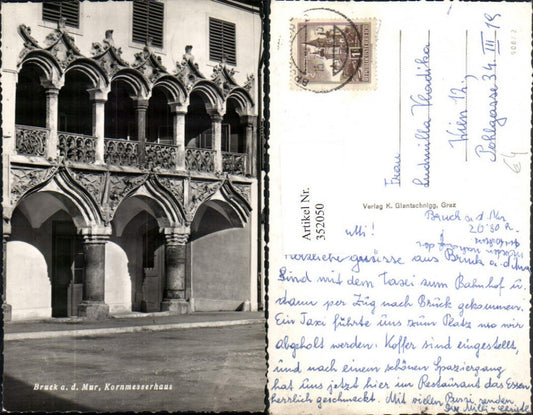 Bruck a. d. Mur, Kornmesserhaus
Artikel Nr.
352050
Verlag K. Glantschnigg, Graz
Frau
Ludmilla Hladika
Wien 12.,
Pohlgasse 34. III 19
Bruck a.d. Mur
Herzliche Grüsse aus Bruck a.d. Mur
Sind mit dem Taxi zum Bahnhof u.
dann per Zug nach Bruck gekommen.
Ein Taxi führte uns zum Platz wo wir
abgeholt werden. Koffer sind eingestellt,
und nach einem schönen Spaziergang
hat uns jetzt hier im Restaurant das Essen
herrlich geschmeckt. Mit vielen Bussi senden